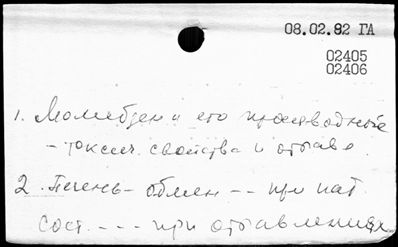 08.02.82 ГА
02405
02406
1. Молибден и его производные
- токсич. свойства и отравл.
2. Печень - обмен -- при пат.
сост. --- при отравлениях